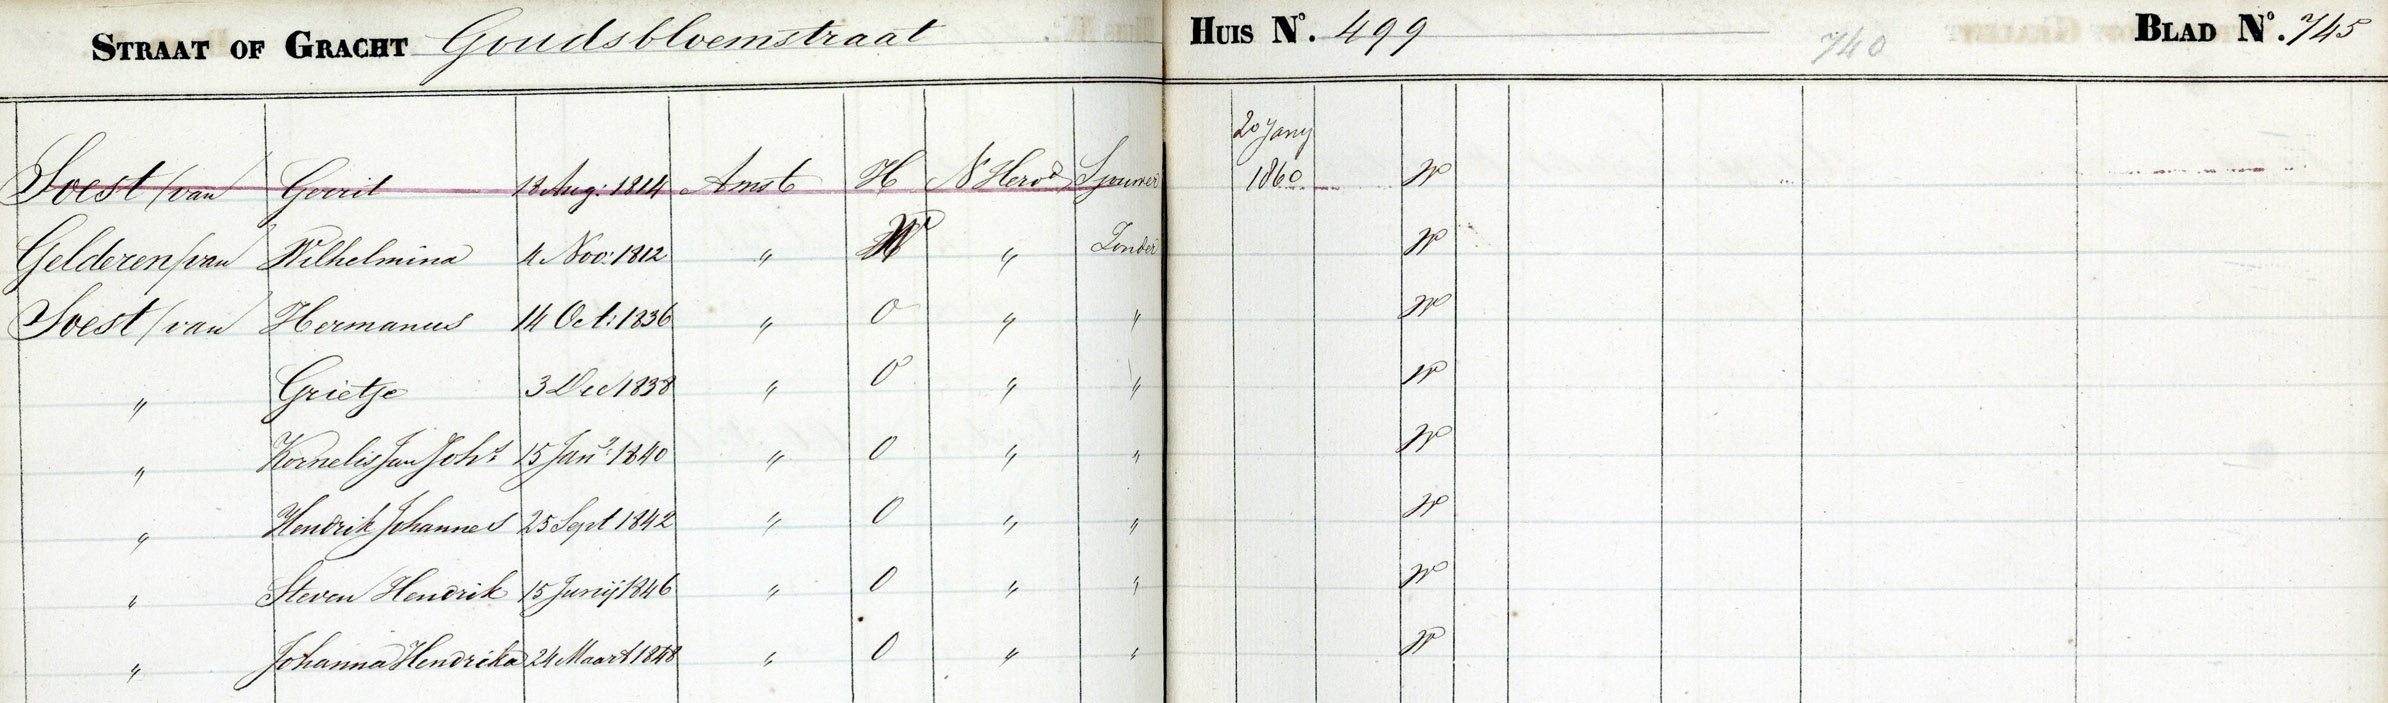 STRAAT OF GRACHT Goudsbloemstraat HUIS No. 499 740 BLAD No. 745
20 Jany
Soest (van Gerrit 18 Aug: 1814 Amst H N Hervd Sjouwer 1860 W
Gelderen (van Wilhelmina 4 Nov: 1812 " W " Zonder W
Soest (van Hermanus 14 Oct: 1836 " O " " W
" Grietje 3 Dec 1838 " O " " W
" Kornelis Jan Johs 15 Jan 1840 " O " " W
" Hendrik Johannes 25 Sept 1842 " O " " W
" Steven Hendrik 15 Junij 1846 " O " " W
" Johanna Hendrika 24 Maart 1848 " O " " W